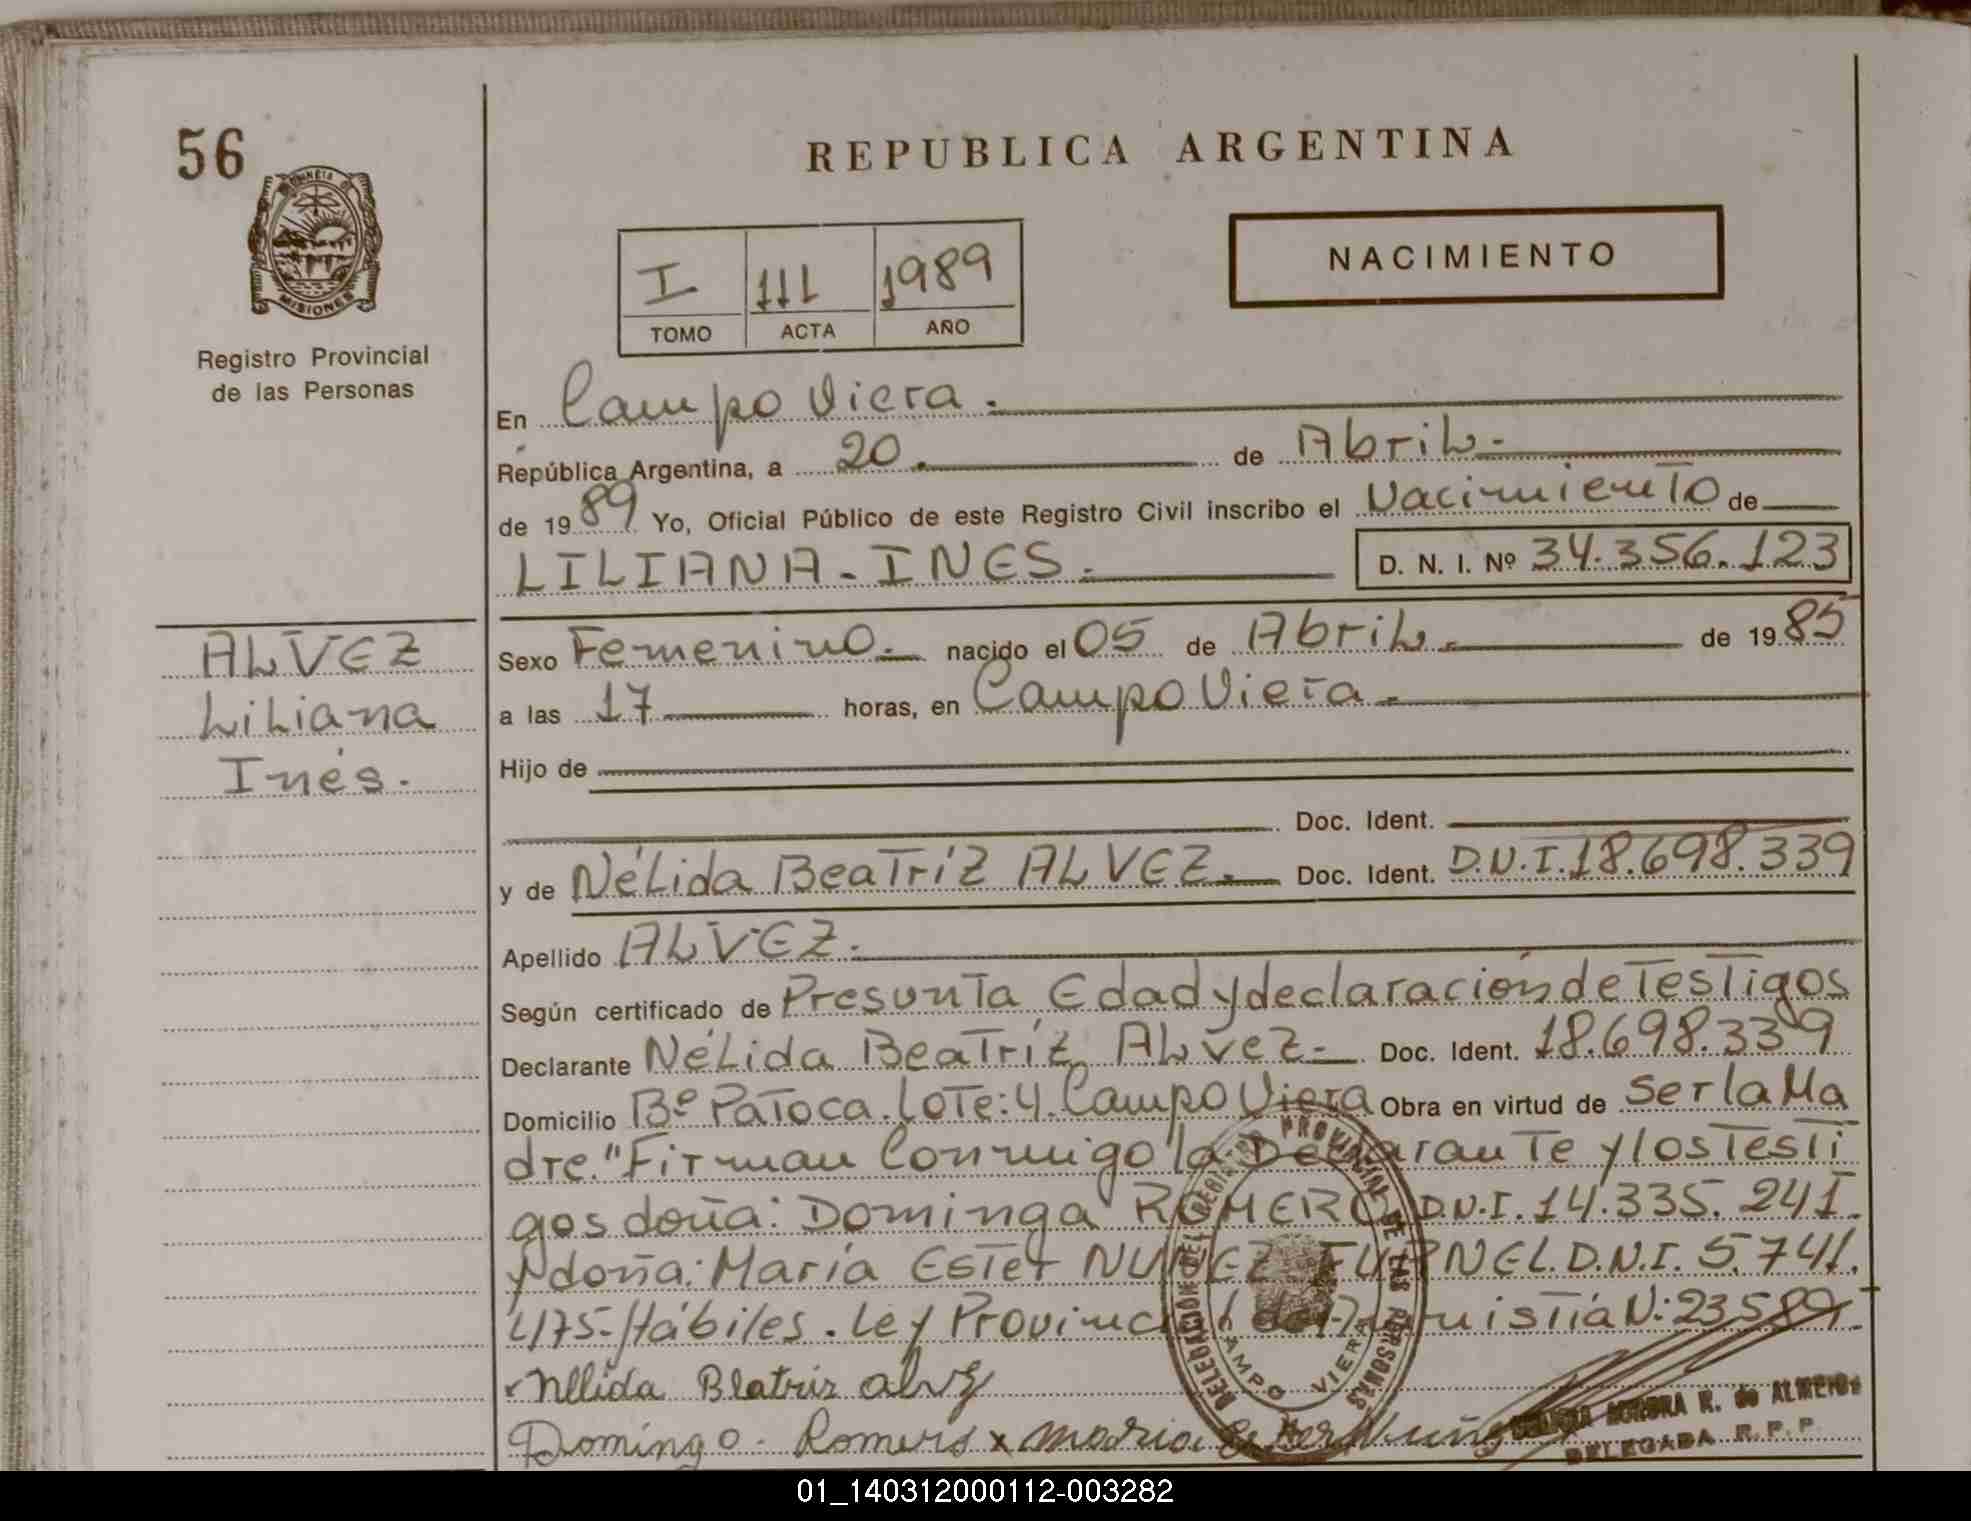 56
REPUBLICA ARGENTINA
PROVINCIA DE
MISIONES
Registro Provincial
de las Personas
NACIMIENTO
I 111 1989
TOMO ACTA AÑO
En Campo Viera.
República Argentina, a 20. de Abril.-
de 1989 Yo, Oficial Público de este Registro Civil inscribo el Nacimiento de
LILIANA-INES.- D. N. I. Nº 34.356.123
ALVEZ
Liliana
Inés.-
Sexo Femenino.- nacido el 05 de Abril.- de 1985
a las 17 horas, en Campo Viera.-
Hijo de
Doc. Ident.
y de Nélida Beatríz ALVEZ.- Doc. Ident. D.N.I.18.698.339
Apellido ALVEZ.-
Según certificado de Presunta Edad y declaración de Testigos
Declarante Nélida Beatríz Alvez.- Doc. Ident. 18.698.339
Domicilio Bº Patoca. Lote:4. Campo Viera Obra en virtud de ser la Ma
dre." Firman Conmigo la Declarante y los Testi
gos doña: Dominga ROMERO D.N.I. 14.335.241.
y doña: María Ester NUÑEZ D.N.I. 5.741.
475.-Hábiles. Ley Provincial de N:23589.
Nelida Beatriz alvez
Domingo. Romero x maria Ester Nuñez
DELEGACION DEL REGISTRO PROVINCIAL DE LAS PERSONAS
CAMPO VIERA
AURORA R. de ALMEIDA
DELEGADA R.P.P.
01_140312000112-003282